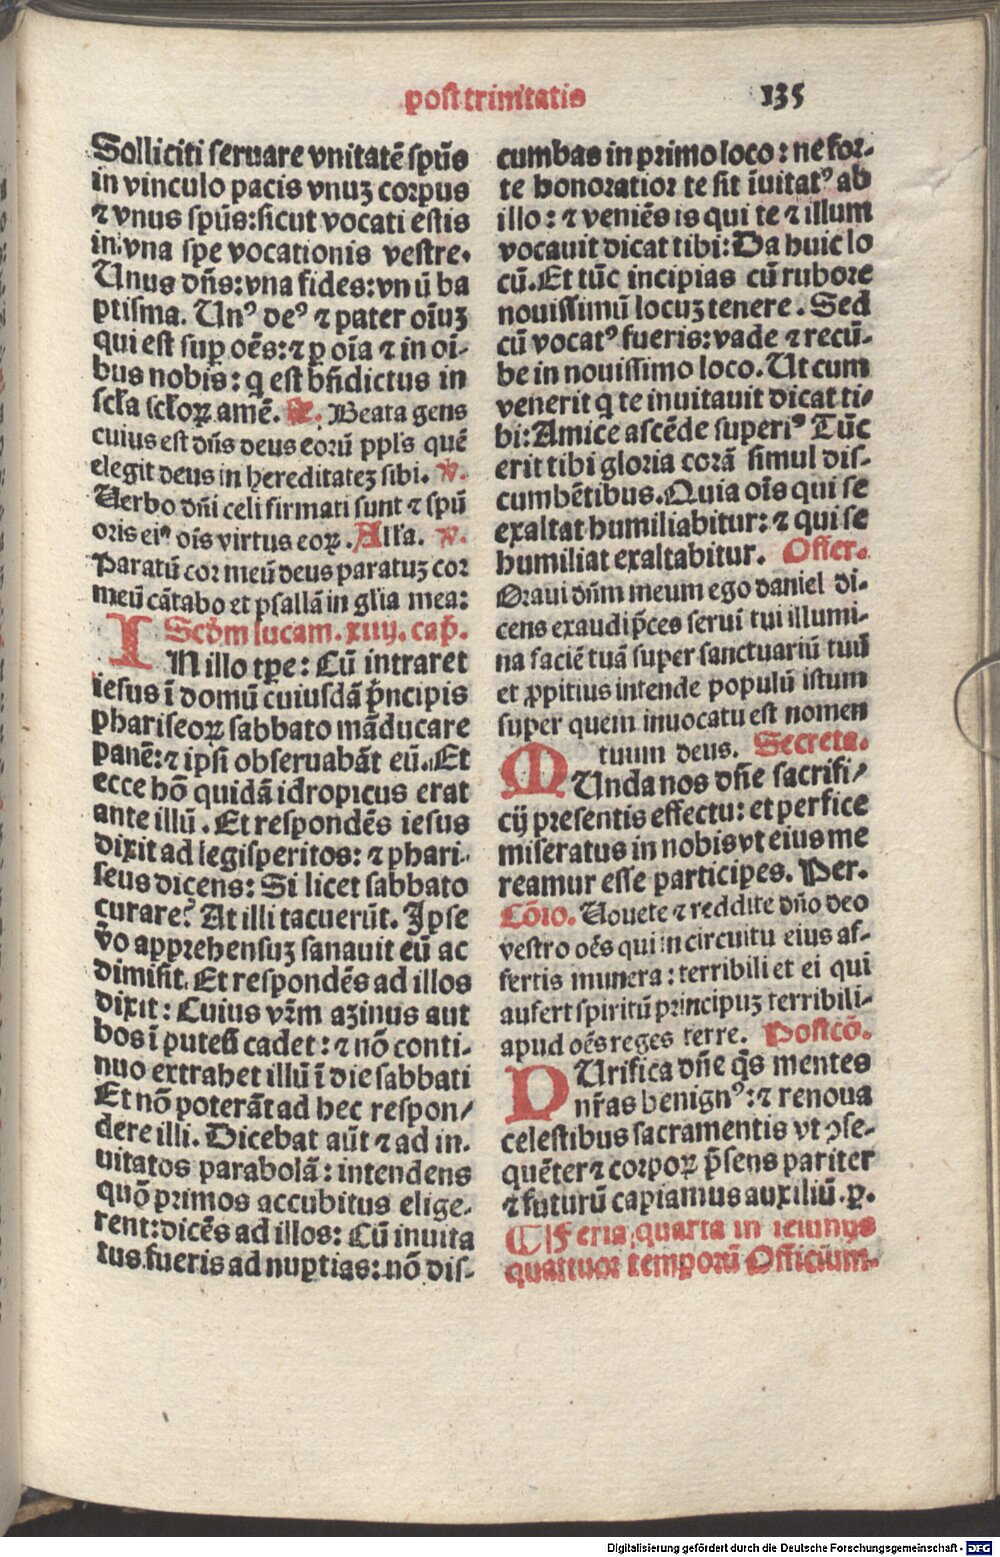 post trinitatis 135
Solliciti seruare vnitatē spūs
in vinculo pacis vnuꝫ corpus
⁊ vnus spūs: sicut vocati estis
in vna spe vocationis vestre.
Unus dn̄s: vna fides: vnū ba
ptisma. Unꝰ deꝰ ⁊ pater oīuꝫ
qui est suꝑ oēs: ⁊ ꝑ oīa ⁊ in oī-
bus nobis: q est bn̄dictus in
scl̄a scl̄oꝝ amē. ꝶ. Beata gens
cuius est dn̄s deus eorū ppl̄s quē
elegit deus in hereditateꝫ sibi. ℣.
Uerbo dn̄i celi firmati sunt ⁊ spū
oris eiꝰ oīs virtus eoꝝ. All̄a. ℣.
Paratū cor meū deus paratuꝫ cor
meū cātabo et psallā in gl̄ia mea:
Scd̄m lucam. xiiij. cap̄.
IN illo tꝑe: Cū intraret
iesus ī domū cuiusdā p̄ncipis
phariseoꝝ sabbato māducare
panē: ⁊ ipsi obseruabāt eū. Et
ecce hō quidā idropicus erat
ante illū. Et respondēs iesus
dixit ad legisperitos: ⁊ phari-
seus dicens: Si licet sabbato
curare? At illi tacuerūt. Ipse
v̄o apprehensuꝫ sanauit eū ac
dimisit. Et respondēs ad illos
dixit: Cuius vr̄m azinus aut
bos ī puteū cadet: ⁊ nō conti-
nuo extrahet illū ī die sabbati
Et nō poterāt ad hec respon/
dere illi. Dicebat aūt ⁊ ad in-
uitatos parabolā: intendens
quō primos accubitus elige-
rent: dicēs ad illos: Cū inuita
tus fueris ad nuptias: nō dis-
cumbas in primo loco: ne for-
te honoratior te sit īuitatꝰ ab
illo: ⁊ veniēs is qui te ⁊ illum
vocauit dicat tibi: Da huic lo
cū. Et tūc incipias cū rubore
nouissimū locuꝫ tenere. Sed
cū vocatꝰ fueris: vade ⁊ recū-
be in nouissimo loco. Ut cum
venerit q te inuitauit dicat ti/
bi: Amice ascēde superiꝰ Tūc
erit tibi gloria corā simul dis-
cumbētibus. Quia oīs qui se
exaltat humiliabitur: ⁊ qui se
humiliat exaltabitur. Offer.
Oraui dn̄m meum ego daniel di-
cens exaudi p̄ces serui tui illumi-
na faciē tuā super sanctuariū tuū
et ꝓpitius intende populū istum
super quem inuocatu est nomen
tuum deus. Secreta.
MUnda nos dn̄e sacrifi/
cij presentis effectu: et perfice
miseratus in nobis vt eius me
reamur esse participes. Per.
Cōio. Uouete ⁊ reddite dn̄o deo
vestro oēs qui in circuitu eius af-
fertis munera: terribili et ei qui
aufert spiritū principuꝫ terribili-
apud oēs reges terre. Postcō.
PUrifica dn̄e q̄s mentes
nr̄as benignꝰ: ⁊ renoua
celestibus sacramentis vt ꝯse-
quēter ⁊ corpoꝝ p̄sens pariter
⁊ futurū capiamus auxiliū. ꝑ.
¶ Feria quarta in ieiunijs
quattuor temporū Officium.
Digitalisierung gefördert durch die Deutsche Forschungsgemeinschaft - DFG